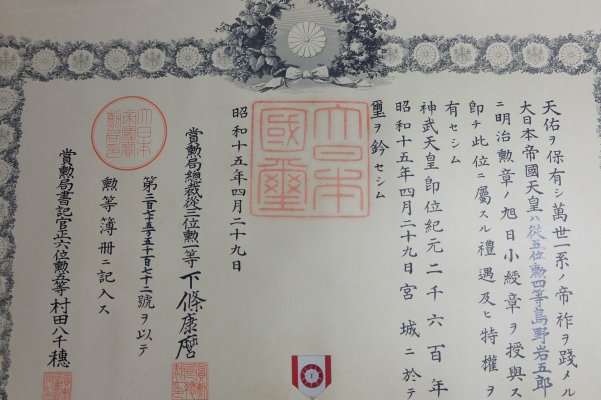 天佑ヲ保有シ萬世一系ノ帝祚ヲ踐メル
大日本帝國天皇ハ從五位勲四等島野岩五郎
ニ明治勲章ノ旭日小綬章ヲ授與ス
卽チ此位ニ屬スル禮遇及ヒ特權ヲ
有セシム
神武天皇卽位紀元二千六百年
昭和十五年四月二十九日宮城ニ於テ
璽ヲ鈐セシム
大日本國璽
昭和十五年四月二十九日
賞勲局總裁從三位勲一等下條康麿
第二百七十五万五千百七十二號ヲ以テ
勲等簿册ニ記入ス
大日本帝國賞勲局印
賞勲局書記官正六位勲五等村田八千穗